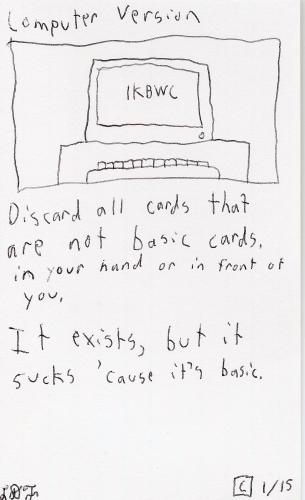 Computer Version
1KBWC
Discard all cards that
are not basic cards.
in your hand or in front of
you.
It exists, but it
sucks 'cause it's basic.
C 1/15